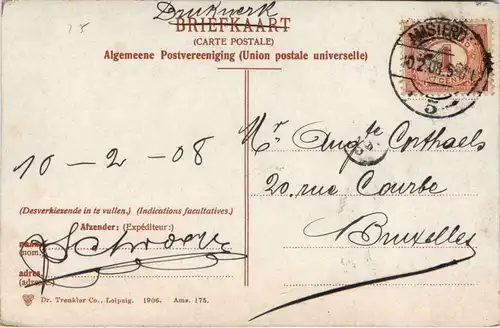 25
Drukwerk
BRIEFKAART
(CARTE POSTALE)
Algemeene Postvereeniging (Union postale universelle)
AMSTERD
10.2.08.5-
5
1
10-2-08
Mr. Augte Cpthaels
20. rue Courbe
Bruxelles
(Desverkiezende in te vullen.) (Indications facultatives.)
Afzender: (Expéditeur:)
naam
(nom.)
adres
(adresse.)
Dr. Trenkler Co., Leipzig. 1906. Ams. 175.